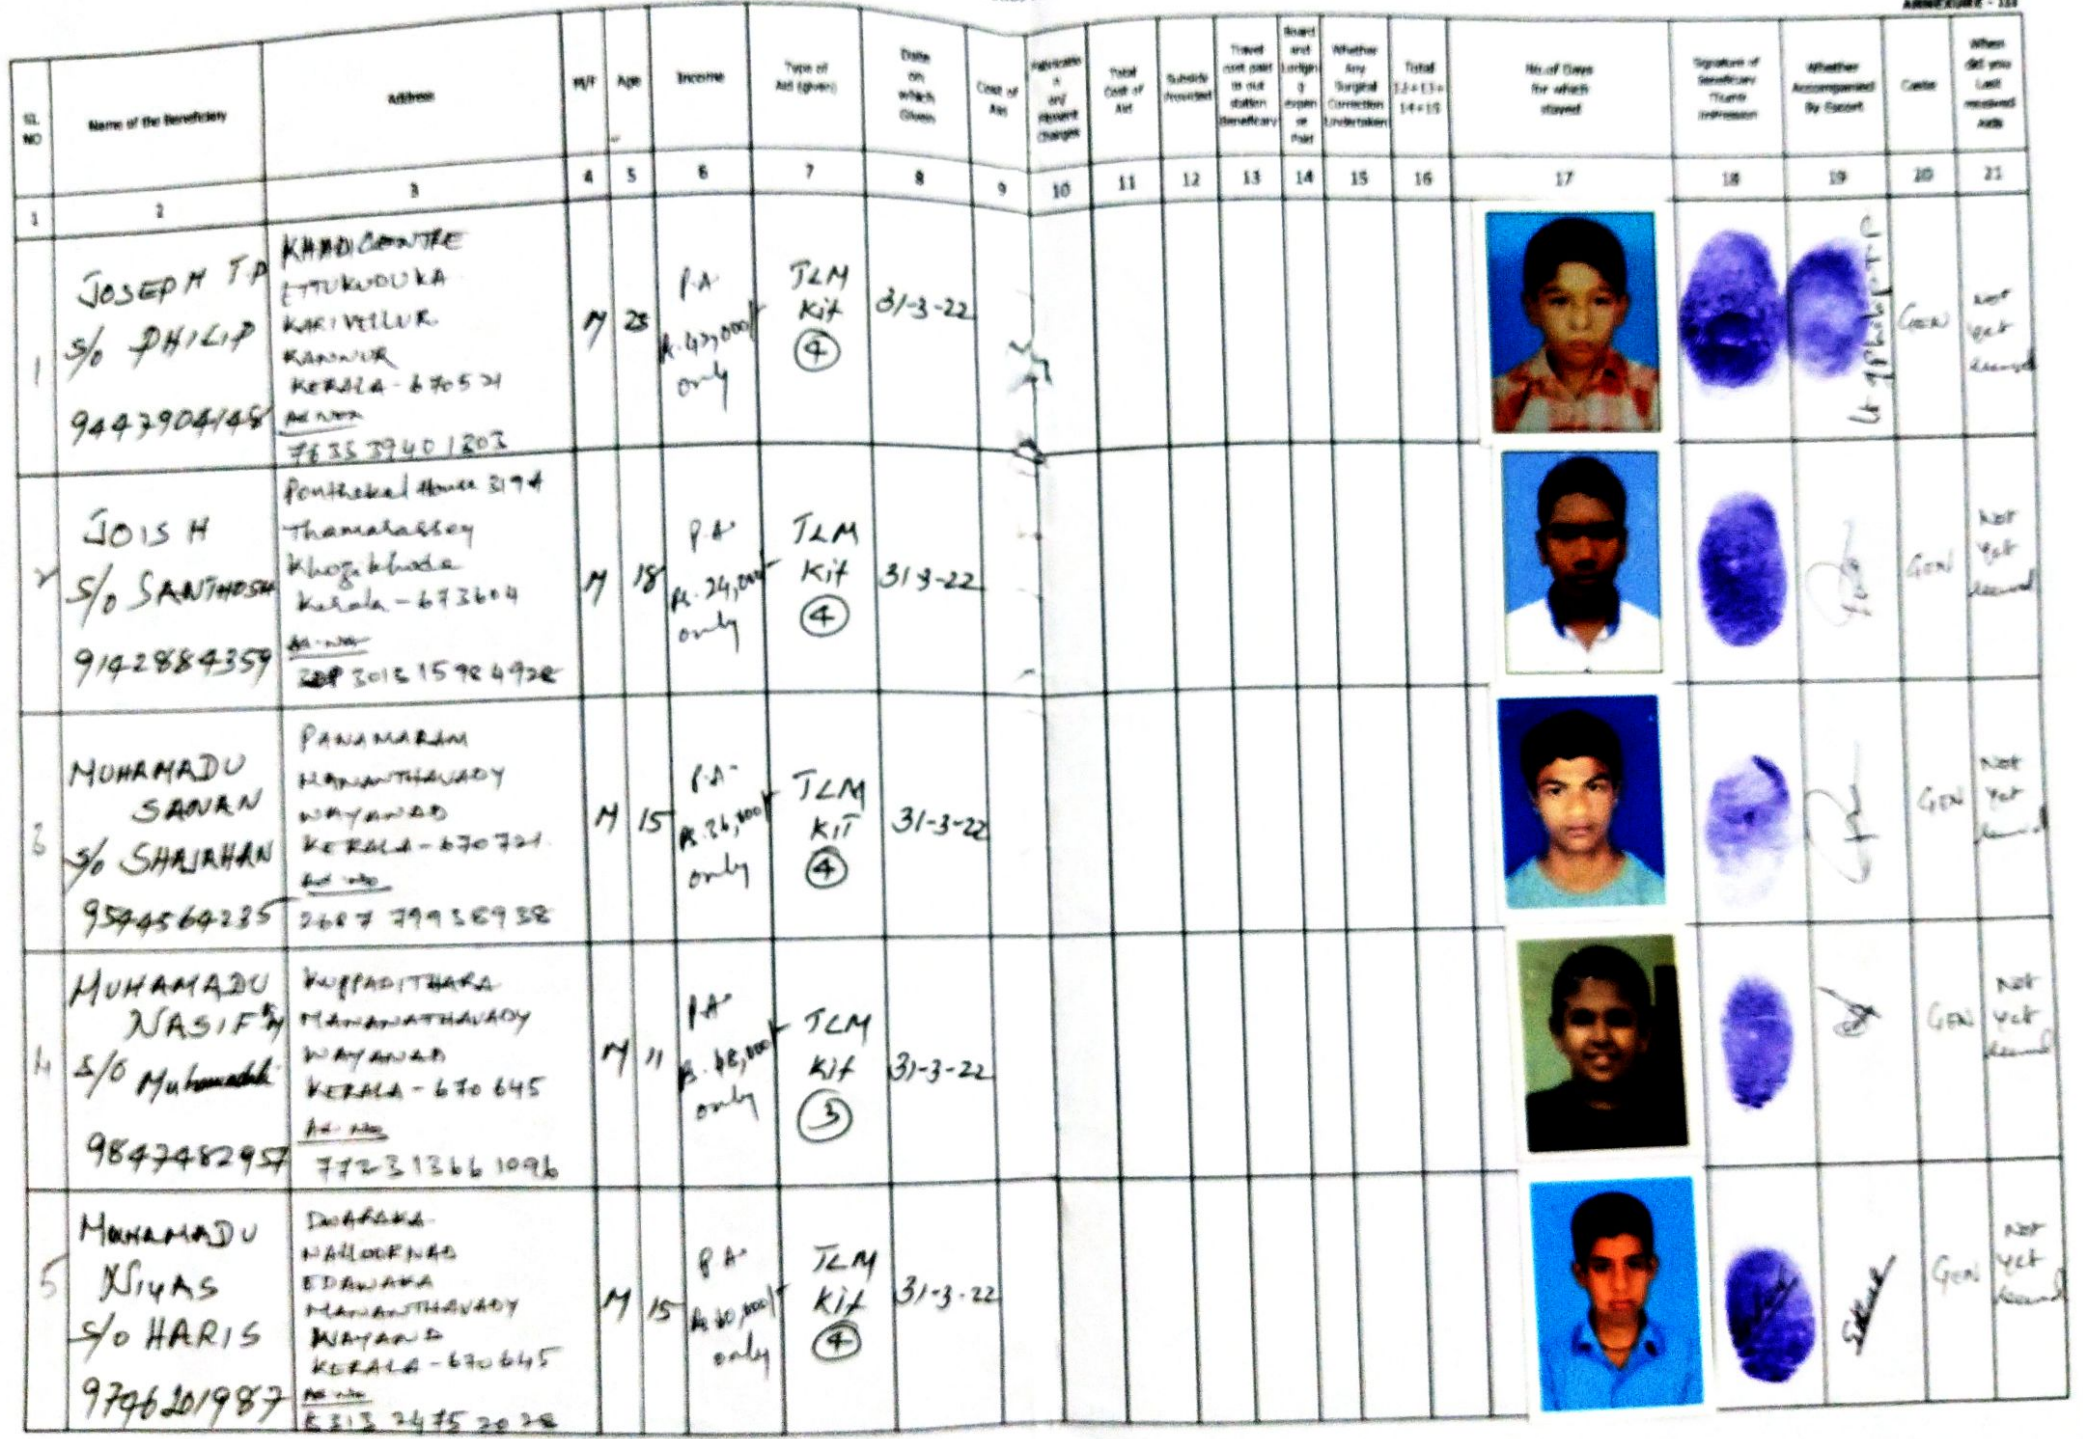 ANNEXURE - III
SL NO
Name of the Beneficiary
Address
M/F
Age
Income
Type of Aid (given)
Date on which Given
Cost of Aid
Total Cost of Aid
Subsidy Provided
Travel cost paid to out station Beneficiary
Board and Lodging expenses Paid
Whether Any Surgical Correction Undertaken
Total 12+13+14+15
No. of Days for which stayed
Signature of Beneficiary Thumb Impression
Whether Accompanied By Escort
Caste
When did you Last received Aids
1 2 3 4 5 6 7 8 9 10 11 12 13 14 15 16 17 18 19 20 21
1
JOSEPH T.P
S/o PHILIP
9447904148
KHADI CENTRE
ETTUKUDUKA
KARIVELLUR
KANNUR
KERALA - 670521
7635 3940 1203
M
25
P.A
only
TLM
Kit
4
31-3-22
Philip T.P
GEN
Not
yet
2
JOISH
S/o SANTHOSH
9142884359
Thamarassey
Kerala - 673604
3013 1598 4928
M
18
P.A
Rs. 24,000/-
only
TLM
Kit
4
31-3-22
GEN
Not
yet
3
MUHAMADU
SANAN
S/o SHAJAHAN
9544564235
PANAMARAM
MANANTHAVADY
WAYANAD
KERALA - 670721
2687 7993 8938
M
15
P.A
Rs. 36,000/-
only
TLM
KIT
4
31-3-22
GEN
Not
yet
4
MUHAMADU
NASIF
S/o
9847482957
KUPPADITHARA
MANANATHAVADY
WAYANAD
KERALA - 670645
7723 1366 1096
M
11
P.A
Rs. 48,000/-
only
TLM
Kit
3
31-3-22
GEN
Not
yet
5
MUHAMADU
NIYAS
S/o HARIS
9746201987
DWARAKA
NALLOORNAD
EDAWAKA
MANANTHAVADY
WAYANAD
KERALA - 670645
2475 2028
M
15
P.A
Rs. 60,000/-
only
TLM
Kit
4
31-3-22
GEN
Not
yet